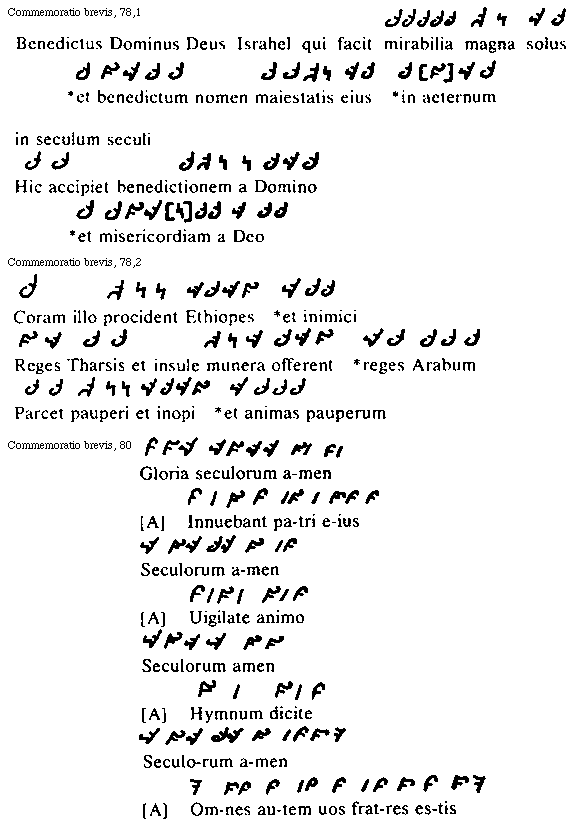 Commemoratio brevis, 78,1
Benedictus Dominus Deus Israhel qui facit mirabilia magna solus
*et benedictum nomen maiestatis eius *in aeternum
in seculum seculi
Hic accipiet benedictionem a Domino
*et misericordiam a Deo
Commemoratio brevis, 78,2
Coram illo procident Ethiopes *et inimici
Reges Tharsis et insule munera offerent *reges Arabum
Parcet pauperi et inopi *et animas pauperum
Commemoratio brevis, 80
Gloria seculorum a-men
[A] Innuebant pa-tri e-ius
Seculorum a-men
[A] Uigilate animo
Seculorum amen
[A] Hymnum dicite
Seculo-rum a-men
[A] Om-nes au-tem uos frat-res es-tis